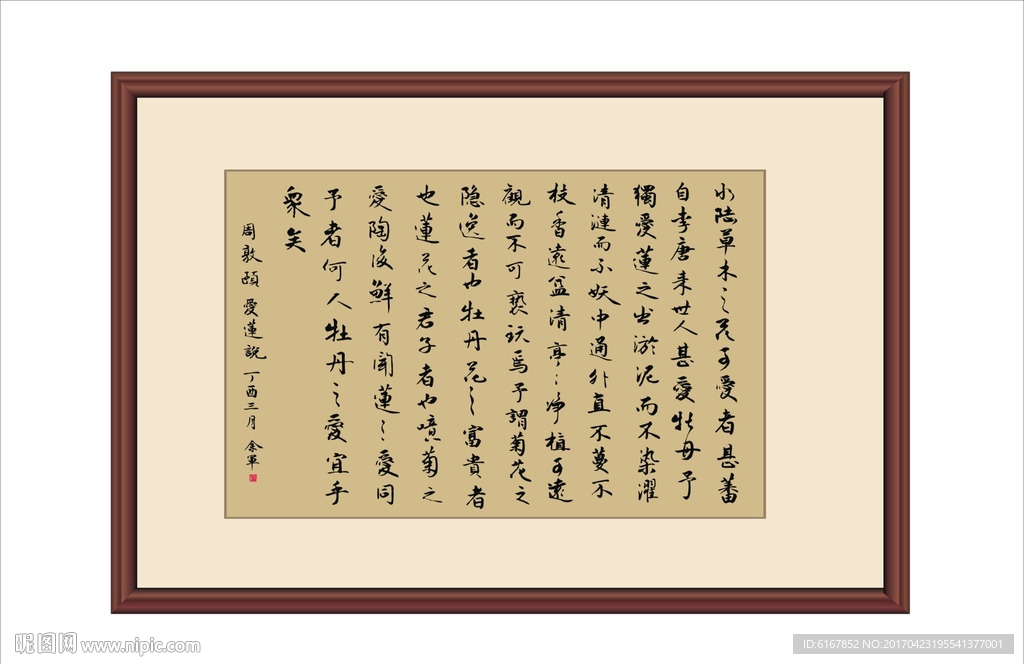 水陸草木之花可愛者甚蕃
自李唐来世人甚愛牡丹予
獨愛蓮之出淤泥而不染濯
清漣而不妖中通外直不蔓不
枝香遠益清亭〻净植可遠
觀而不可褻玩焉予謂菊花之
隐逸者也牡丹花之富貴者
也蓮花之君子者也噫菊之
愛陶後鮮有聞蓮之愛同
予者何人牡丹之愛宜乎
衆矣
周敦頤愛蓮説丁酉三月余軍
昵图网 www.nipic.com
ID:6167852 NO:20170423195541377001